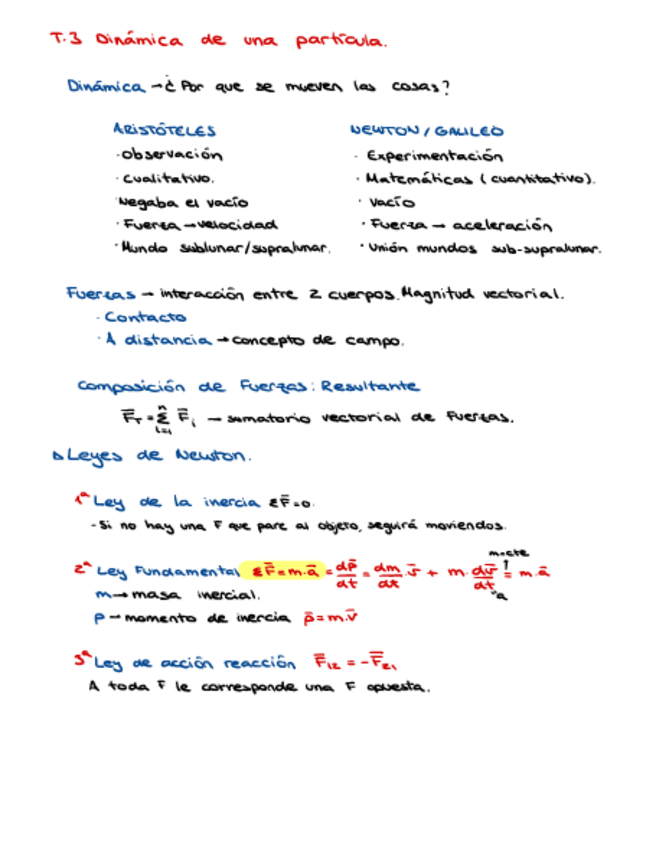 T.3 Dinámica de una partícula.
Dinámica → ¿ Por que se mueven las cosas?
ARISTÓTELES
· Observación
· Cualitativo.
· Negaba el vacío
· Fuerza → velocidad
· Mundo sublunar/supralunar.
NEWTON / GALILEO
· Experimentación
· Matemáticas (cuantitativo).
· Vacío
· Fuerza → aceleración
· Unión mundos sub-supralunar.
Fuerzas → interacción entre 2 cuerpos. Magnitud vectorial.
· Contacto
· A distancia → concepto de campo.
Composición de Fuerzas: Resultante
F̄_T = Σ_{i=1}^{n} F̄_i → sumatorio vectorial de Fuerzas.
Leyes de Newton.
1ª Ley de la inercia ΣF̄=0.
- Si no hay una F que pare al objeto, seguirá moviendos.
m=cte
2ª Ley Fundamental ΣF̄=m·ā = dp̄/dt = dm/dt · v̄ + m · dv̄/dt = m·ā
m → masa inercial. ā
p → momento de inercia p̄=m.v̄
3ª Ley de acción reacción F̄₁₂ = -F̄₂₁
A toda F le corresponde una F opuesta.